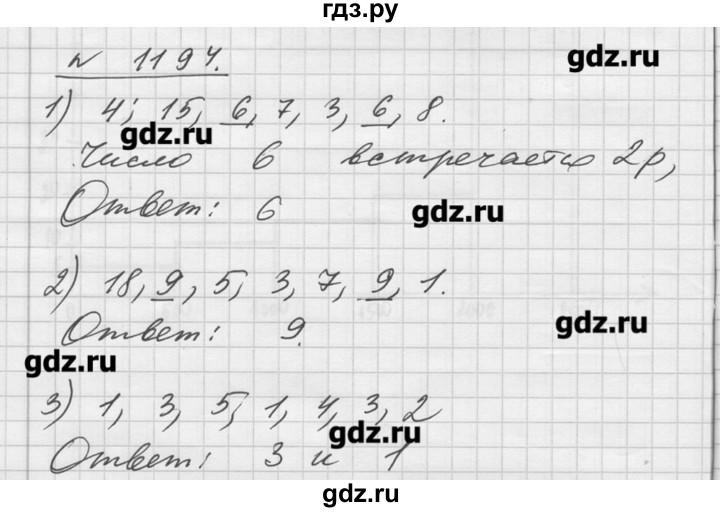 гдз.ру
№ 1194.
gdz.ru
1) 4; 15, 6, 7, 3, 6, 8.
gdz.ru
Число 6 встречается 2р,
Ответ: 6
gdz.ru
2) 18, 9, 5, 3, 7, 9, 1.
Ответ: 9.
gdz.ru
gdz.ru
3) 1, 3, 5, 1, 4, 3, 2
gdz.ru
Ответ: 3 и 1
gdz.ru